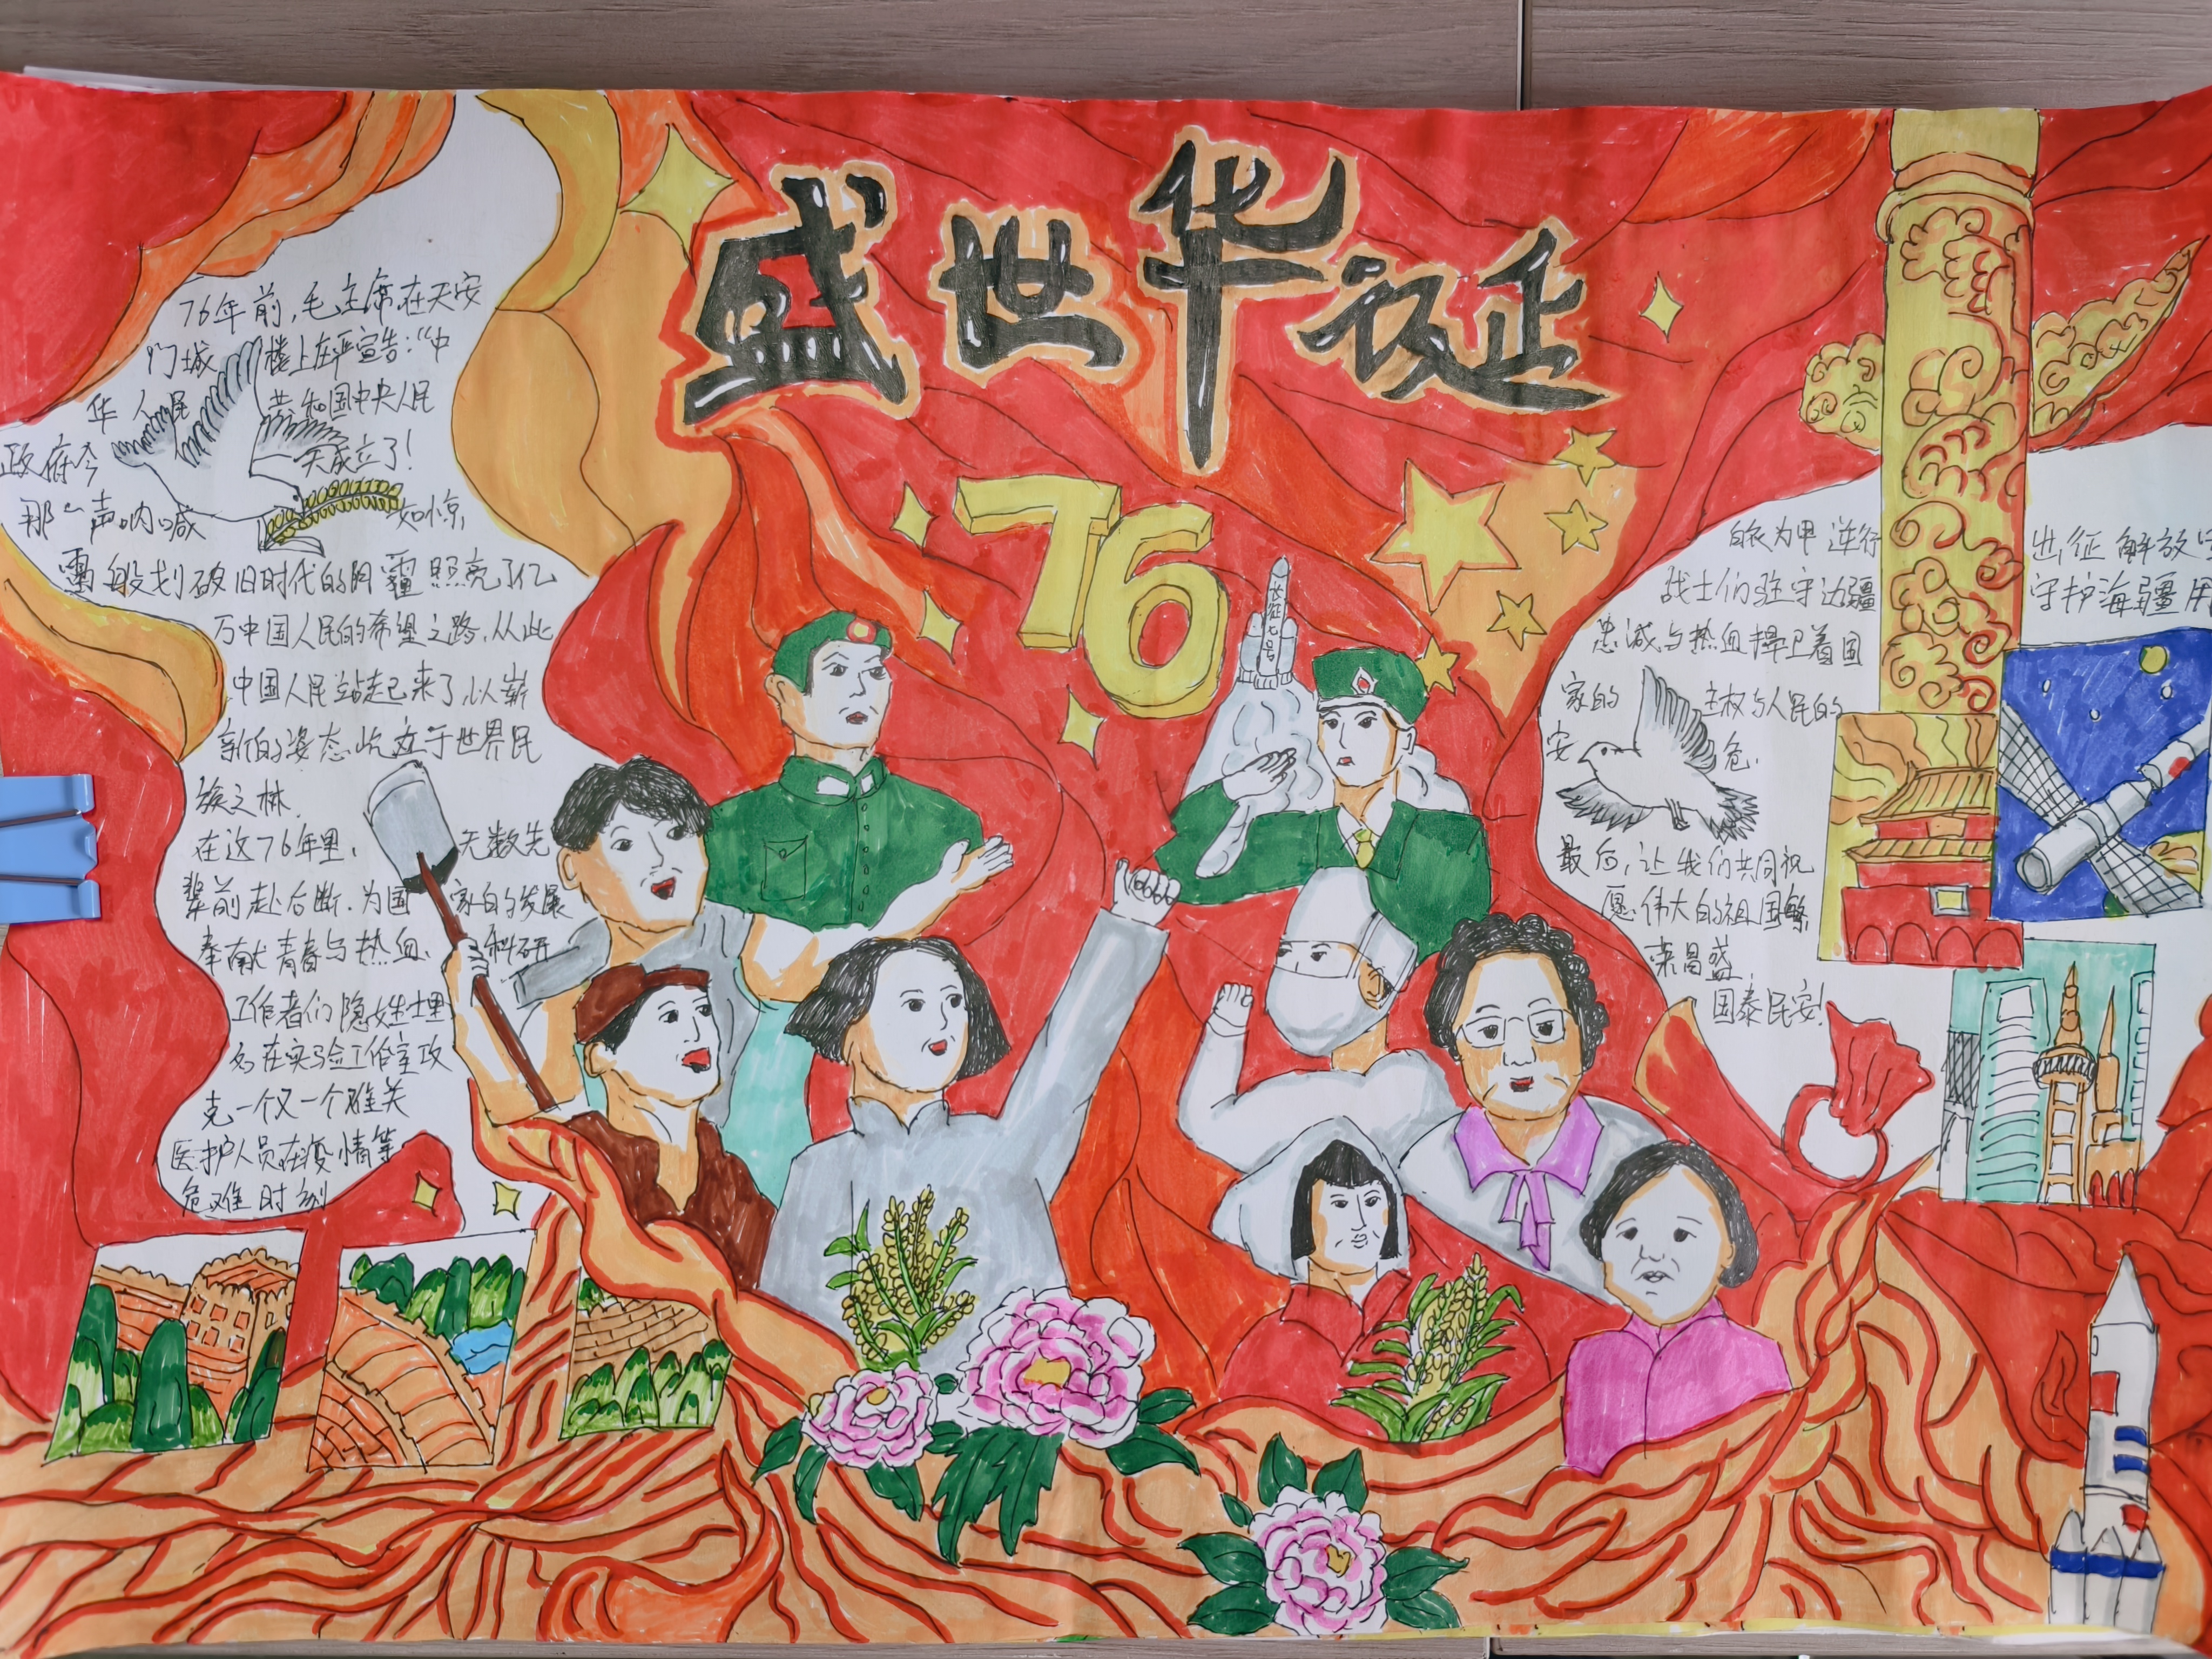 盛世华诞
76
长征七号
76年前,毛主席在天安
门城楼上庄严宣告:“中
华人民共和国中央人民
政府今天成立了!
那一声呐喊如惊
雷般划破旧时代的阴霾照亮了亿
万中国人民的希望之路,从此
中国人民站起来了,以崭
新的姿态屹立于世界民
族之林.
在这76年里,无数先
辈前赴后断.为国家的发展
奉献青春与热血、科研
工作者们隐姓埋
名在实验工作室攻
克一个又一个难关
医护人员在疫情等
危难时刻
白衣为甲逆行出征解放
战士们驻守边疆守护海疆用
忠诚与热血捍卫着国
家的主权与人民的
安危.
最后,让我们共同祝
愿伟大的祖国繁
荣昌盛
国泰民安!